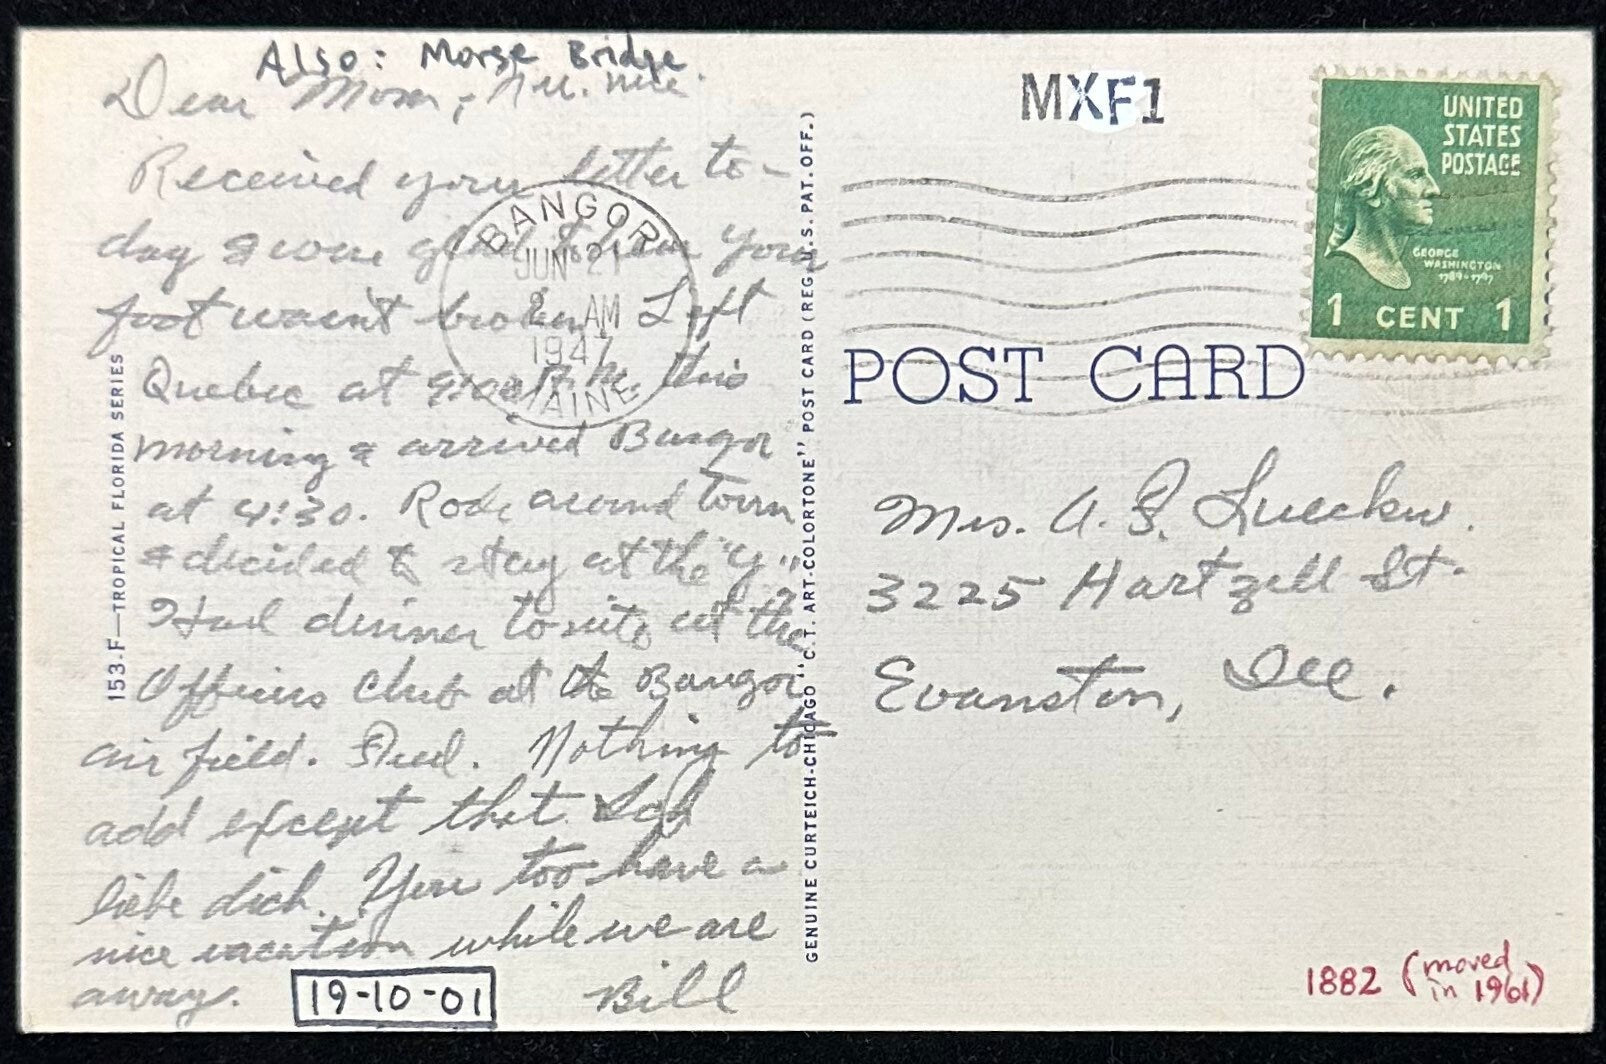 Also: Morse Bridge.
Dear Mom,
Received your letter to-
day & was glad to hear your
foot wasn't broken. Left
Quebec at A.M. this
morning & arrived Bangor
at 4:30. Rode around town
& decided to stay at the "Y".
Had dinner tonite at the
Officers Club at the Bangor
air field. Nothing to
add except that Ich
liebe dich. You too have a
nice vacation while we are
away.
Bill
19-10-01
BANGOR
JUN 21
AM
1947
MAINE
153-F—TROPICAL FLORIDA SERIES
GENUINE CURTEICH-CHICAGO "C.T. ART-COLORTONE" POST CARD (REG. U.S. PAT. OFF.)
MXF1
UNITED
STATES
POSTAGE
GEORGE
WASHINGTON
1789-1797
1 CENT 1
POST CARD
Mrs. A.
3225 Hartzell St.
Evanston, Ill.
1882 (moved
in 1961)